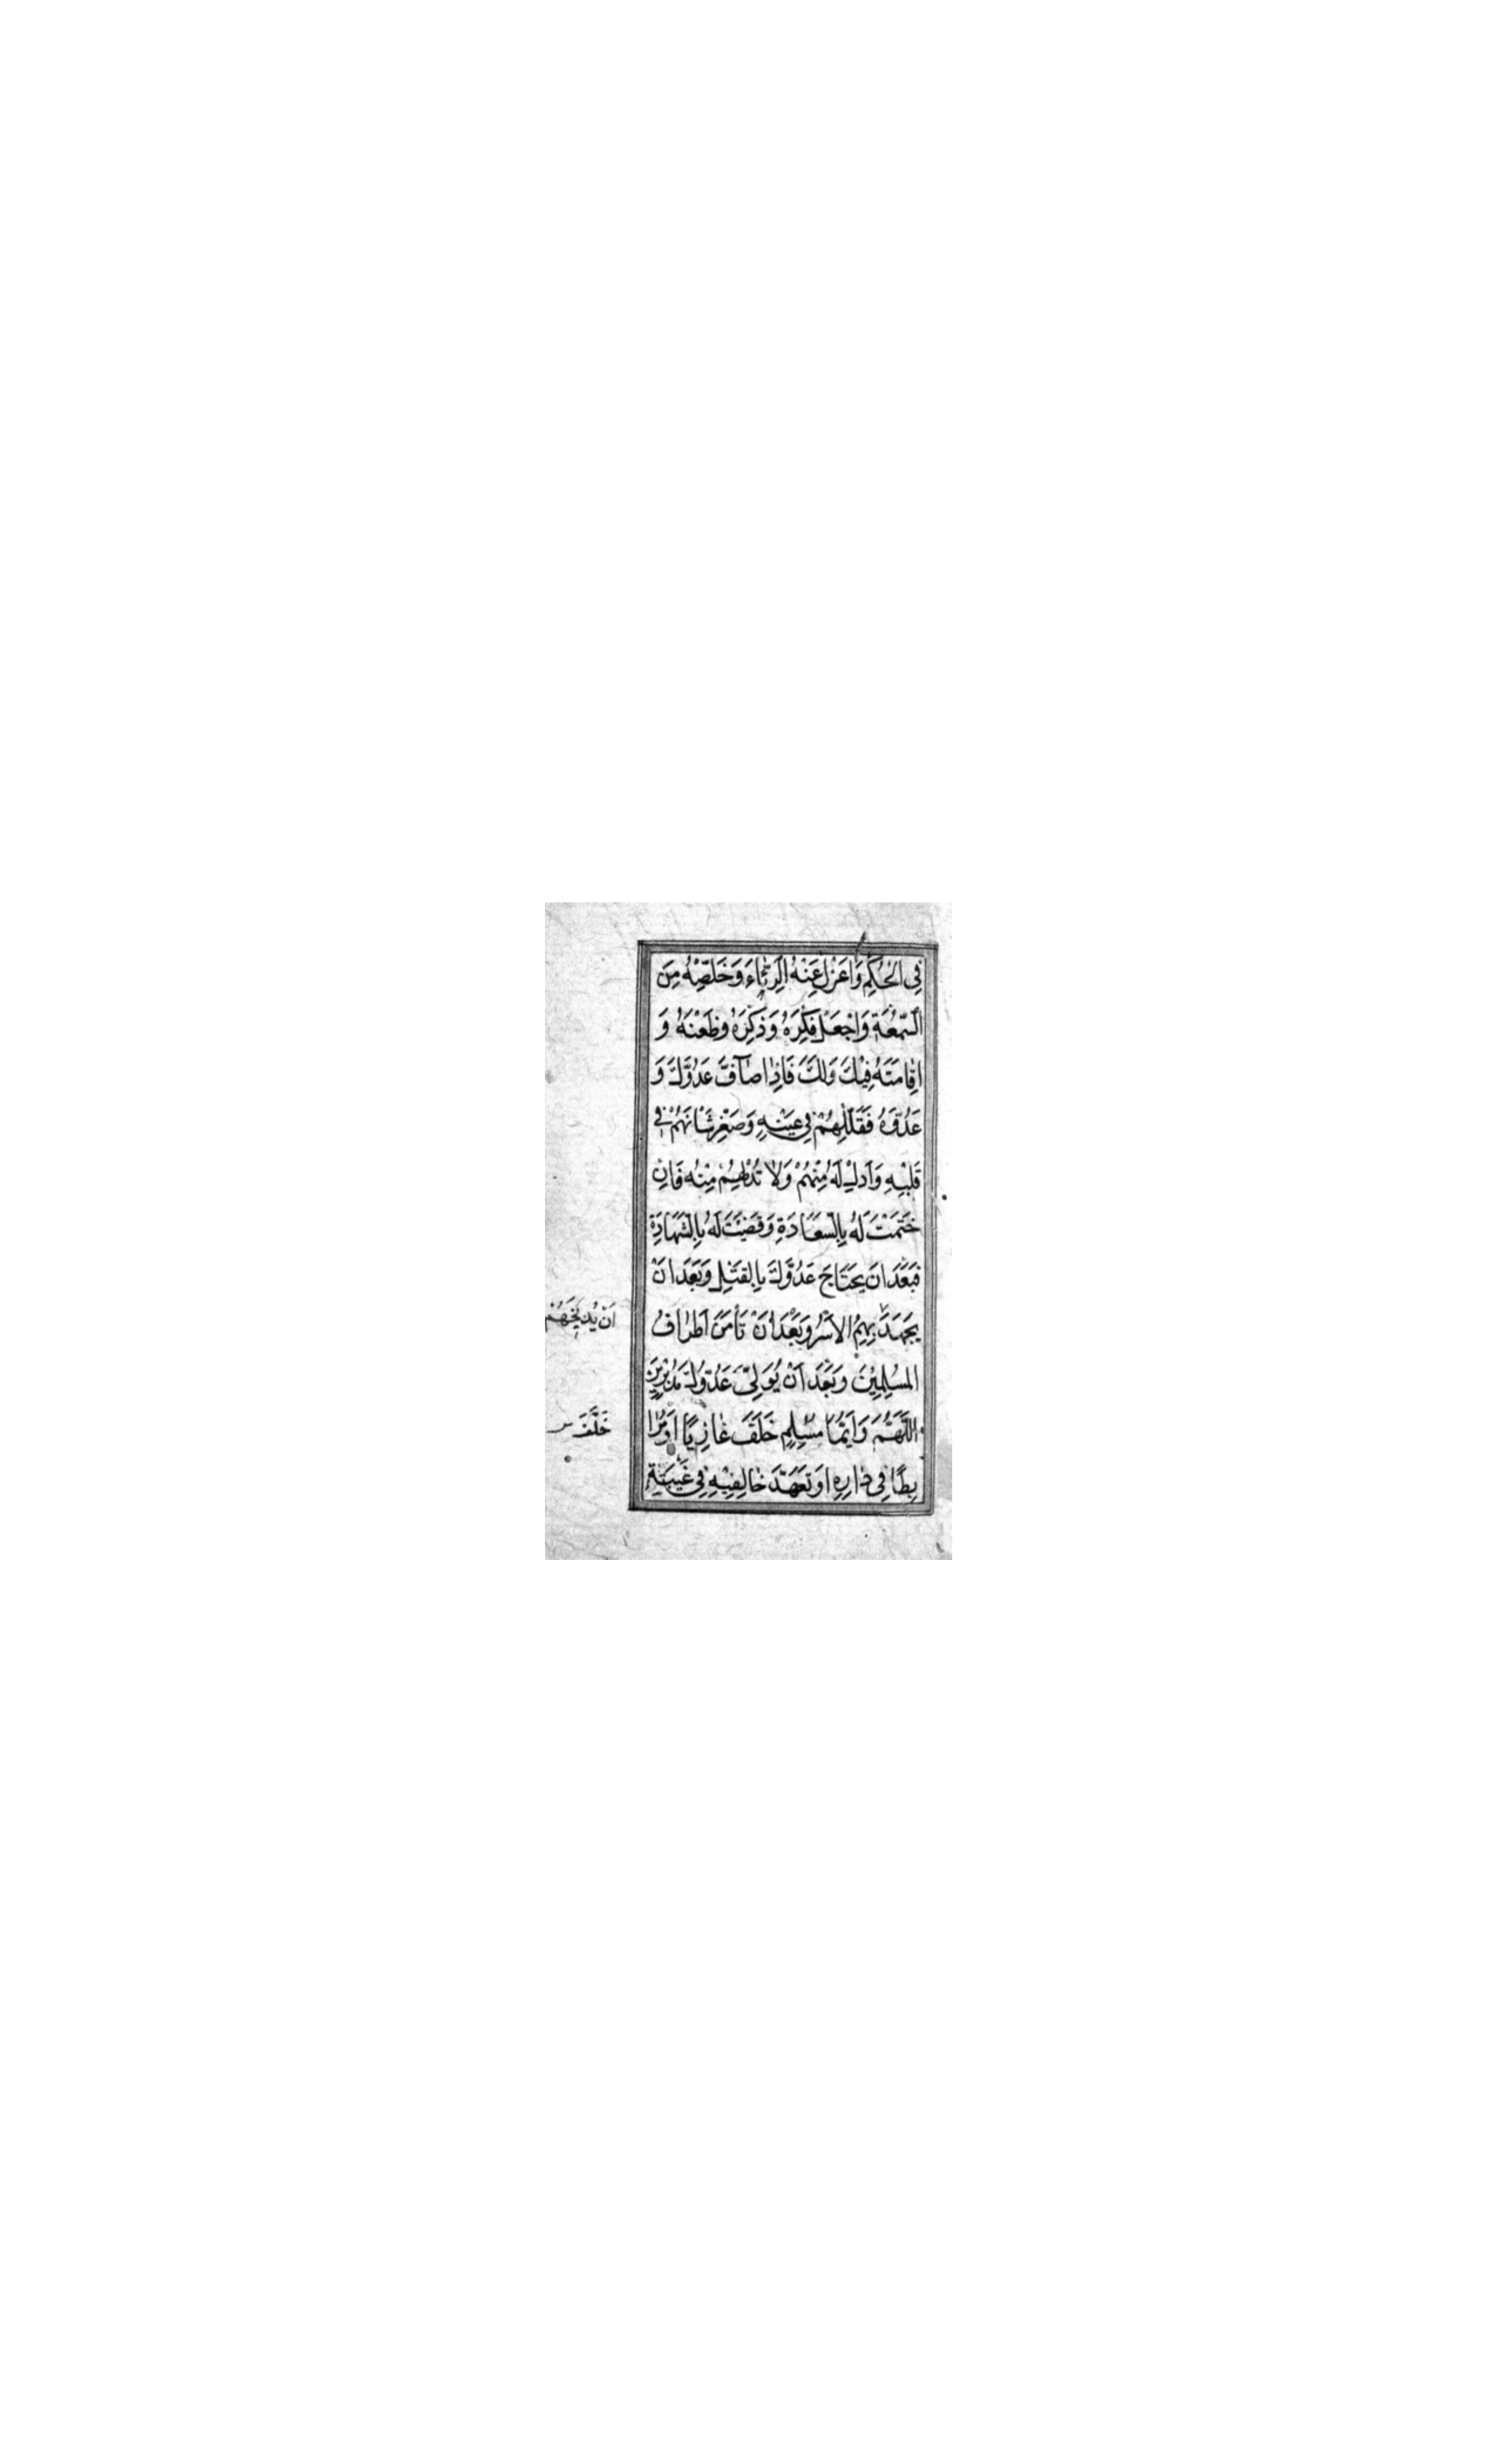 فِي الْحُكْمِ وَاعْزِلْ عَنْهُ الرِّئَاءَ وَخَلِّصْهُ مِنَ
السُّمْعَةِ وَاجْعَلْ فِكْرَهُ وَذِكْرَهُ وَظَعْنَهُ وَ
اِقَامَتَهُ فِيْكَ وَلَكَ فَاِذَا صَآفَّ عَدُوَّكَ وَ
عَدُوَّهُ فَقَلِّلْهُمْ فِي عَيْنِهِ وَصَغِّرْ شَأْنَهُمْ فِي
قَلْبِهِ وَاَدِلْ لَهُ مِنْهُمْ وَلَا تُدِلْهُمْ مِنْهُ فَاِنْ
خَتَمْتَ لَهُ بِالسَّعَادَةِ وَقَضَيْتَ لَهُ بِالشَّهَادَةِ
فَبَعْدَ اَنْ يَجْتَاحَ عَدُوَّكَ بِالْقَتْلِ وَبَعْدَ اَنْ
يَجْهَدَ بِهِمُ الْاَسْرُ وَبَعْدَ اَنْ تَأْمَنَ اَطْرَافُ
الْمُسْلِمِيْنَ وَبَعْدَ اَنْ يُوَلِّيَ عَدُوُّكَ مُدْبِرِيْنَ
اَللّٰهُمَّ وَاَيُّمَا مُسْلِمٍ خَلَفَ غَازِيًا اَوْ مُرَا
بِطًا فِي دَارِهِ اَوْ تَعَهَّدَ خَالِفِيْهِ فِي غَيْبَتِهِ
اَنْ يُدِيخَهُمْ
خَلَّفَ س